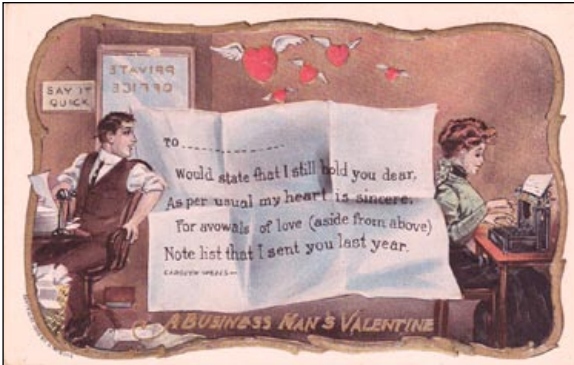 PRIVATE
OFFICE
SAY IT
QUICK
TO
Would state that I still hold you dear,
As per usual my heart is sincere,
For avowals of love (aside from above)
Note list that I sent you last year.
CAROLYN WELLS—
A BUSINESS MAN'S VALENTINE